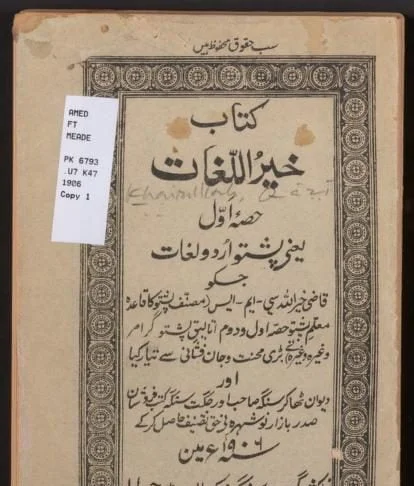 سب حقوق محفوظ ہیں
AMED
FT
MEADE
PK 6793
.U7 K47
1906
Copy 1
کتاب
خیر اللّغات
Khairullah,
حصہٴ اوّل
یعنی پشتو اردو لغات
جسکو
قاضی خیر اللہ سی - ایم - ایس (مصنف پشتو کا قاعدہ
معلم پشتو حصہ اول و دوم اتالیق پشتو گرامر
وغیرہ وغیرہ) نے بڑی محنت و جان فشانی سے تیار کیا
اور
دیوان ٹھاکر سنگھ صاحب اور جگت سنگھ کتب فروشان
صدر بازار نوشہرہ نے حق تصنیف حاصل کر کے
سنہ ۱۹۰۶ء میں